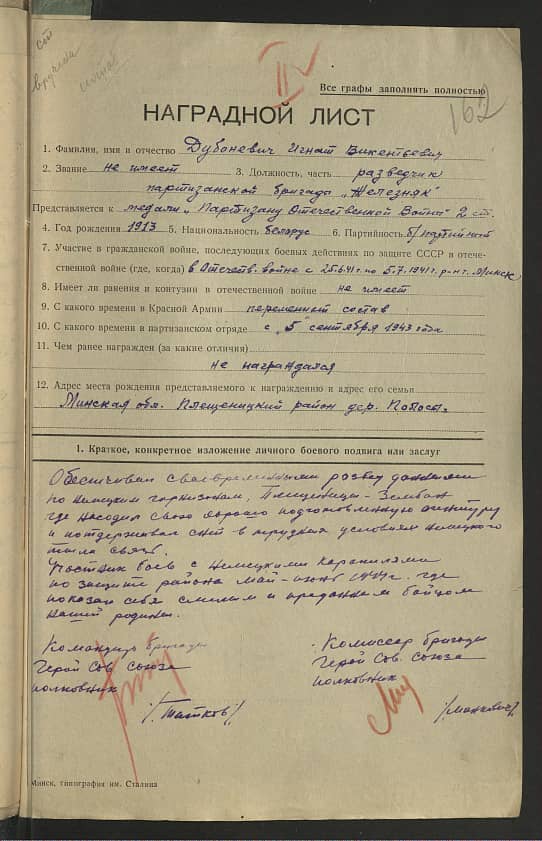 вручена
II
Все графы заполнять полностью
162
НАГРАДНОЙ ЛИСТ
1. Фамилия, имя и отчество Дубоневич Игнат Викентьевич
2. Звание не имеет 3. Должность, часть разведчик
партизанской бригады „Железняк"
Представляется к медали „Партизану Отечественной Войны" 2 ст.
4. Год рождения 1913 5. Национальность белорус 6. Партийность б/партийный
7. Участие в гражданской войне, последующих боевых действиях по защите СССР и отече-
ственной войне (где, когда) в Отечеств. войне с 25.6.41 г. по 5.7.1941 г. р-н г. Минск
8. Имеет ли ранения и контузии в отечественной войне не имеет
9. С какого времени в Красной Армии переменный состав
10. С какого времени в партизанском отряде с 5 сентября 1943 года
11. Чем ранее награжден (за какие отличия)
не награждался
12. Адрес места рождения представляемого к награждению и адрес его семьи
Минская обл. Плещеницкий район дер.
1. Краткое, конкретное изложение личного боевого подвига или заслуг
Обеспечивал своевременными развед данными
по немецким гарнизонам, Плещеницы - Зембин
где насадил свою хорошо подготовленную агентуру
и поддерживал с ней в трудных условиях немецкого
тыла связь.
Участник боев с немецкими карателями
по защите района май-июнь 1944 г. где
показал себя смелым и преданным бойцом
нашей родины.
Командир бригады
Герой Сов. Союза
полковник
/Титков/
Комиссар бригады
Герой Сов. Союза
полковник
/Манкович/
Минск, типография им. Сталина